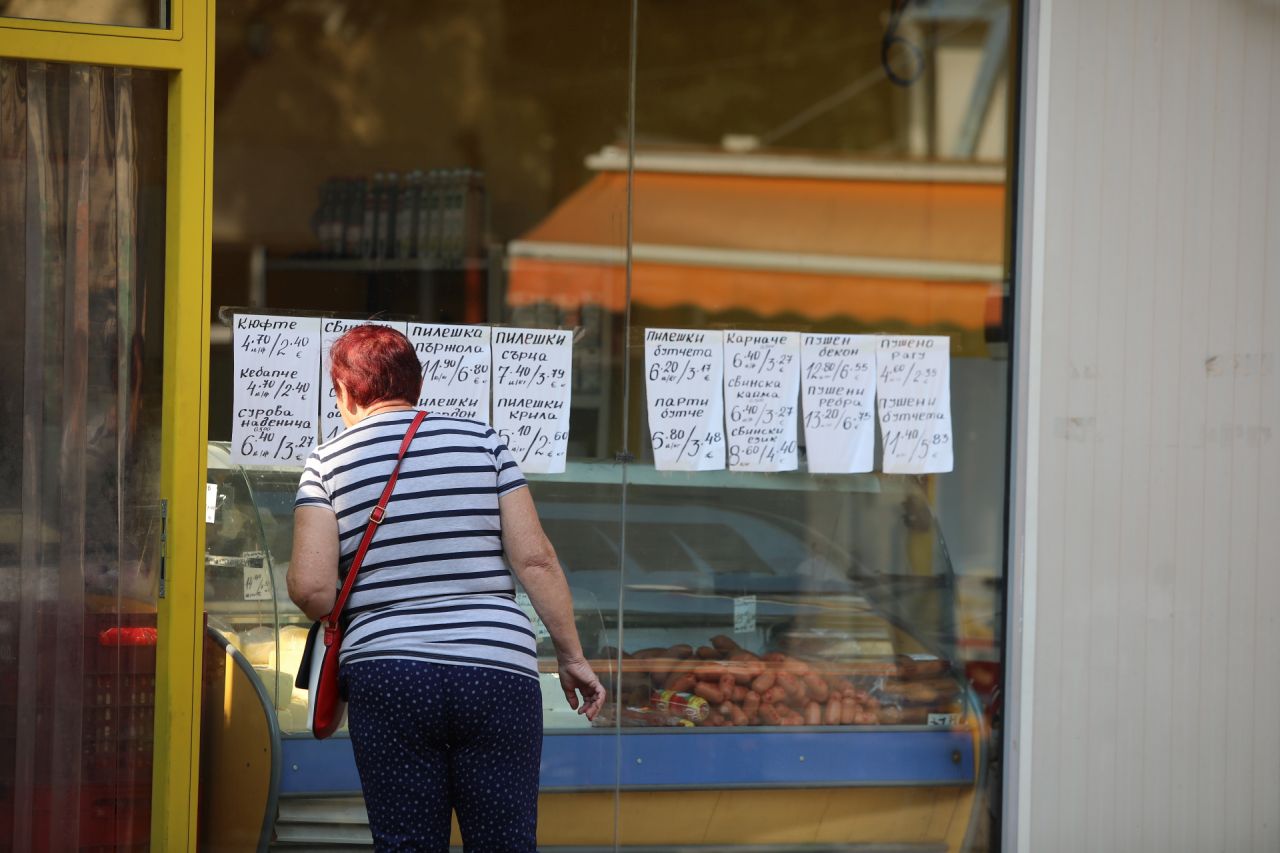 Кюфте
4.70/2.40
€
Кебапче
4.70/2.40
€
Сурова
наденица
0.500
6.40/3.27
€
ПИЛЕШКА
ПЪРЖОЛА
11.90/6.80
€
ПИЛЕШКИ
СЪРЦА
7.40/3.79
€
ПИЛЕШКИ
КРИЛА
5.10/2.60
€
ПИЛЕШКИ
бутчета
6.20/3.17
€
ПАРТИ
бутче
6.80/3.48
€
КАРНАЧЕ
6.40/3.27
€
СВИНСКА
КАЙМА
6.40/3.27
€
СВИНСКИ
ЕЗИК
8.60/4.40
€
ПУШЕН
бекон
12.80/6.55
€
ПУШЕНИ
РЕБРА
13.20/6.75
€
ПУШЕНО
РАГУ
4.60/2.35
€
ПУШЕНИ
бутчета
11.40/5.83
€